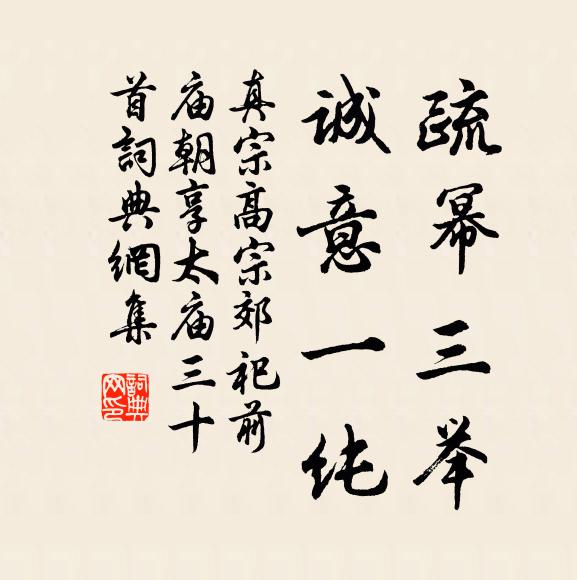 疏幂三举
诚意一纯
真宗高宗郊祀前
庙朝享太庙三十
首詞典網集
詞典网印